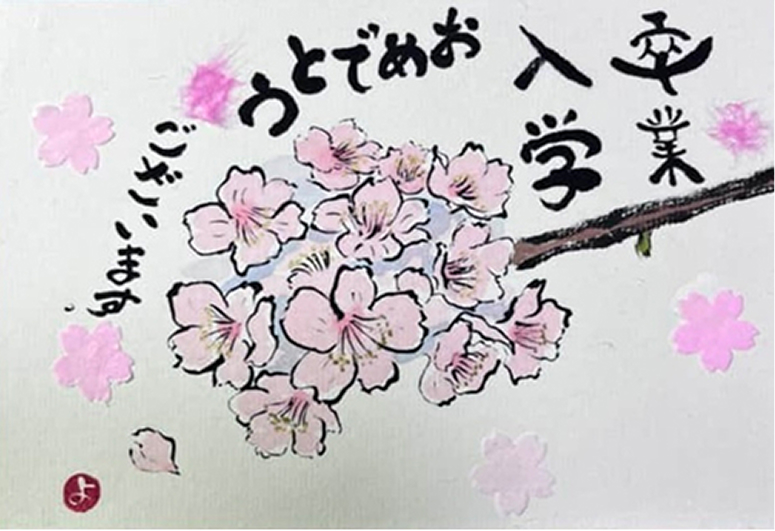 卒業
入学
おめでとう
ございます。
よ